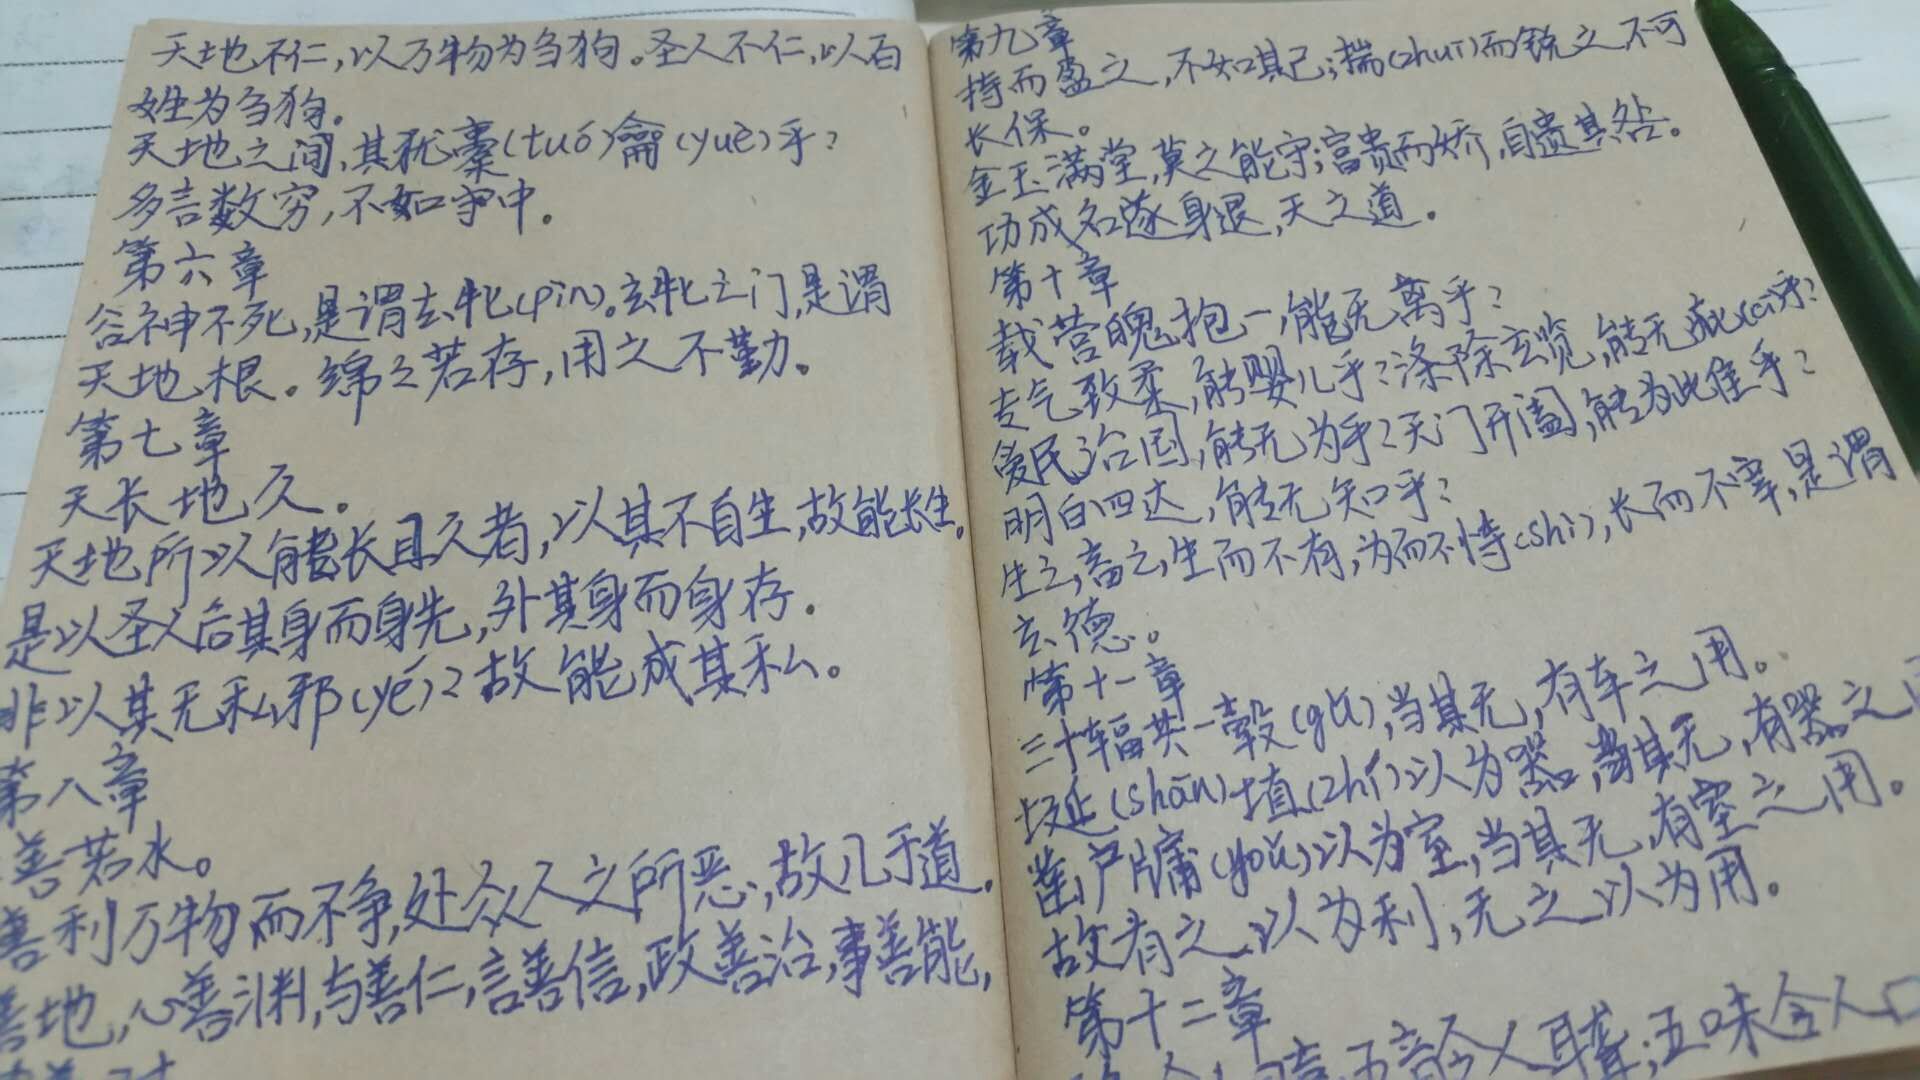 天地不仁,以万物为刍狗。圣人不仁,以百
姓为刍狗。
天地之间,其犹橐(tuó)龠(yuè)乎?
多言数穷,不如守中。
第六章
谷神不死,是谓玄牝(pìn)。玄牝之门,是谓
天地根。绵之若存,用之不勤。
第七章
天长地久。
天地所以能长且久者,以其不自生,故能长生。
是以圣人后其身而身先,外其身而身存。
非以其无私邪(yé)?故能成其私。
第八章
善若水。
善利万物而不争,处众人之所恶,故几于道。
善地,心善渊,与善仁,言善信,政善治,事善能,
第九章
持而盈之,不如其已;揣(zhuī)而锐之不可
长保。
金玉满堂,莫之能守;富贵而娇,自遗其咎。
功成名遂身退,天之道。
第十章
载营魄抱一,能无离乎?
专气致柔,能婴儿乎?涤除玄览,能无疵(cī)乎?
爱民治国,能无为乎?天门开阖,能为此隹乎?
明白四达,能无知乎?
生之,畜之,生而不有,为而不恃(shì),长而不宰,是谓
玄德。
第十一章
三十辐共一毂(gǔ),当其无,有车之用。
埏(shān)埴(zhí)以为器,当其无,有器之用
凿户牖(yǒu)以为室,当其无,有室之用。
故有之以为利,无之以为用。
第十二章
盲,五音令人耳聋;五味令人口